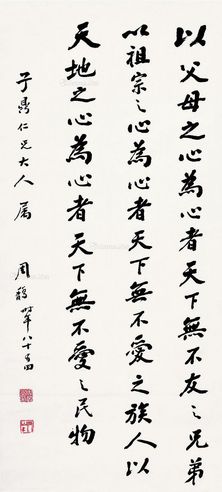 以父母之心為心者天下無不友之兄弟
以祖宗之心為心者天下無不愛之族人以
天地之心為心者天下無不愛之民物
子勇仁兄大人屬
周 時年八十有四